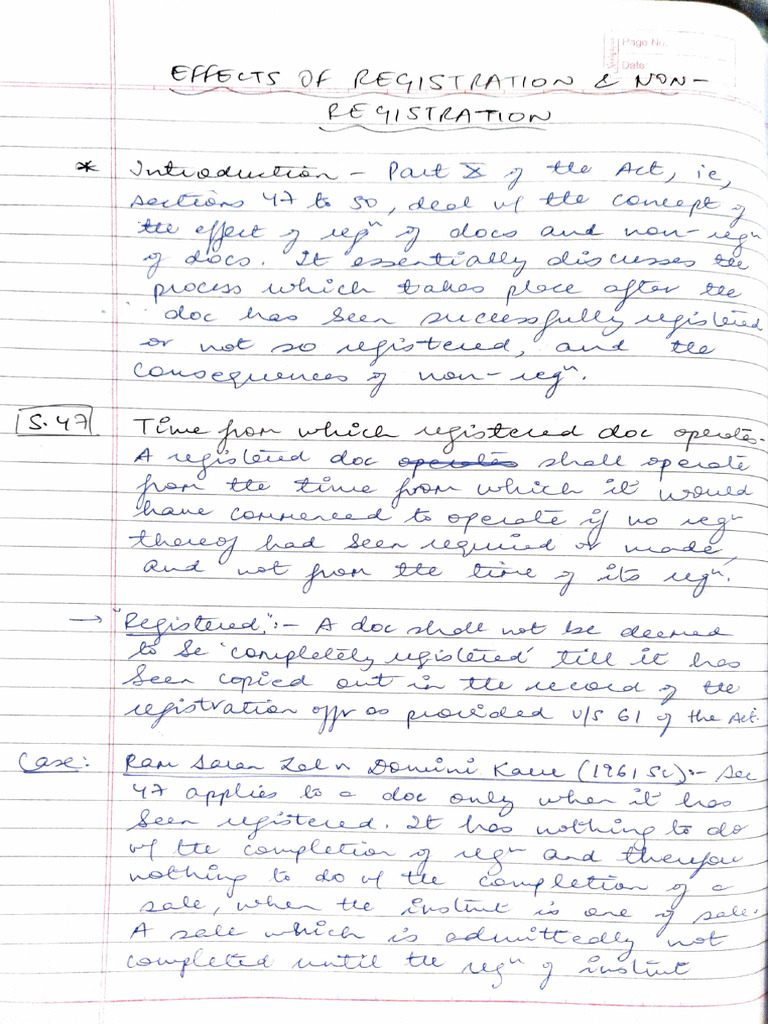 Page No.
Date
EFFECTS OF REGISTRATION & NON-
REGISTRATION
* Introduction - Part X of the Act, ie,
sections 47 to 50, deal w/ the concept of
the effect of regⁿ of docs and non-regⁿ
of docs. It essentially discusses the
process which takes place after the
doc has been successfully registered
or not so registered, and the
consequences of non-regⁿ.
S.47 Time from which registered doc operates.
A registered doc operates shall operate
from the time from which it would
have commenced to operate if no regⁿ
thereof had been required or made,
and not from the time of its regⁿ.
→ "Registered":- A doc shall not be deemed
to be 'completely registered' till it has
been copied out in the record of the
registration offr as provided u/s 61 of the Act.
Case: Ram Saran Lal v Domini Kaur (1961 SC):- Sec
47 applies to a doc only when it has
been registered. It has nothing to do
w/ the completion of regⁿ and therefore
nothing to do w/ the completion of a
sale, when the instmt is one of sale.
A sale which is admittedly not
completed until the regⁿ of instmt